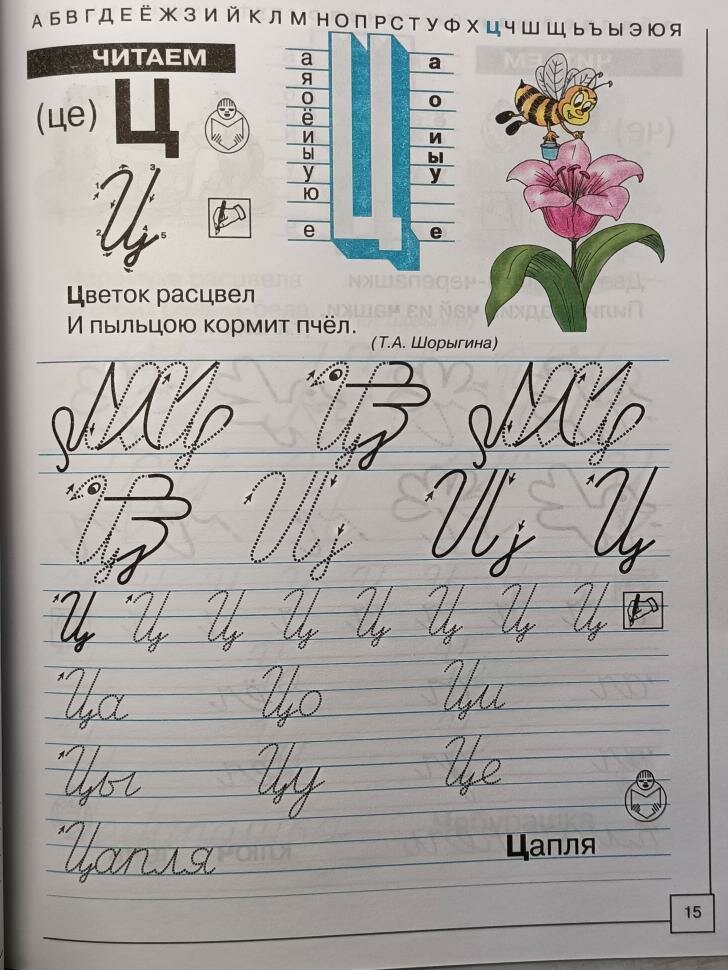 А Б В Г Д Е Ё Ж З И Й К Л М Н О П Р С Т У Ф Х Ц Ч Ш Щ Ь Ъ Ы Э Ю Я
ЧИТАЕМ
(це) Ц
а
я
о
ё
и
ы
у
ю
е
Ц
а
о
и
ы
у
е
1 3
2 4 5
Ц
Цветок расцвел
И пыльцою кормит пчёл.
(Т.А. Шорыгина)
Ц Ц Ц
Ц Ц Ц Ц
Ц Ц Ц Ц Ц Ц Ц Ц
Ца Цо Ци
Цы Цу Це
Цапля Цапля
15